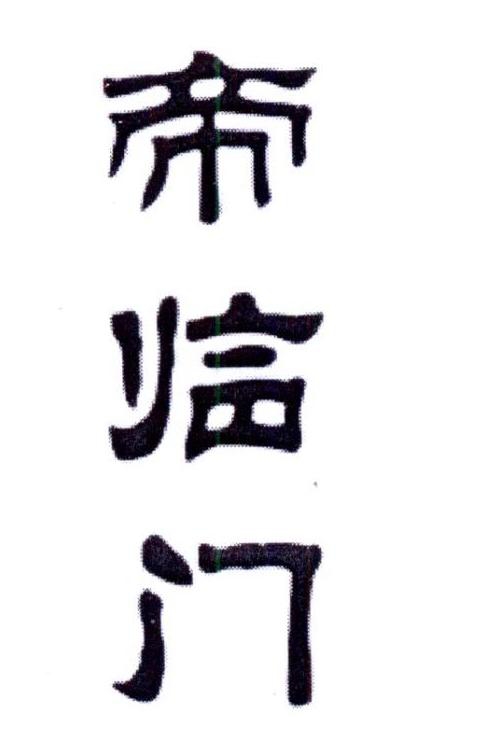 帝临门